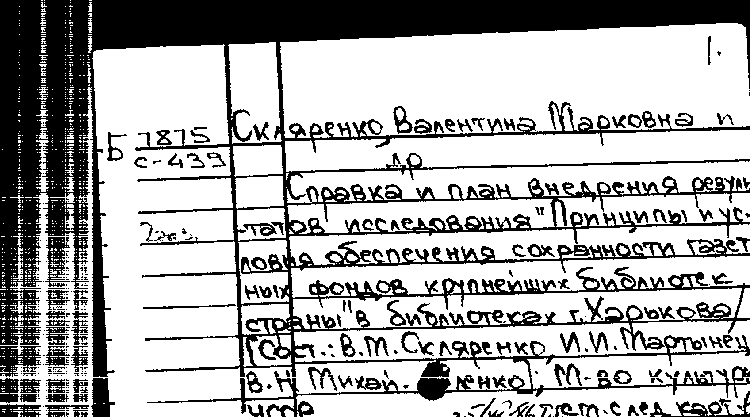 1.
Б 7875 Скляренко, Валентина Марковна и
с-439 др
Справка и план внедрения резуль
2 экз. -татов исследования "Принципы и ус-
ловия обеспечения сохранности газет
ных фондов крупнейших библиотек
страны" в библиотеках г. Харькова /
[Сост.: В.М. Скляренко, И.И. Мартынец
В.Н. Михай. ленко]; М-во культур
УССР см. след. карт.